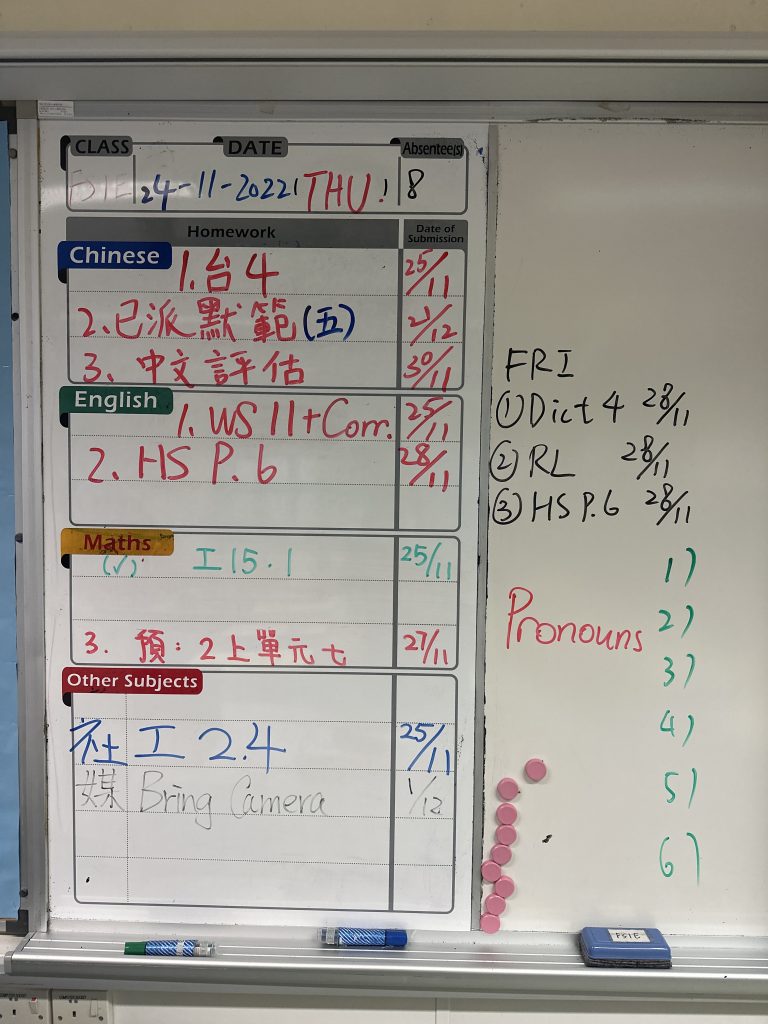 CLASS DATE Absentee(s)
FS1E 24-11-2022 THU! 8
Homework Date of Submission
Chinese
1.台4 25/11
2.已派默範(五) 2/12
3.中文評估 30/11
English
1. WS 11+Corr. 25/11
2. HS P.6 28/11
Maths
(✓) 工15.1 25/11
3. 預:2上單元七 27/11
Other Subjects
社 工 2.4 25/11
媒 Bring Camera 1/12
FRI
① Dict 4 28/11
② RL 28/11
③ HS P.6 28/11
Pronouns
1)
2)
3)
4)
5)
6)
FS1E